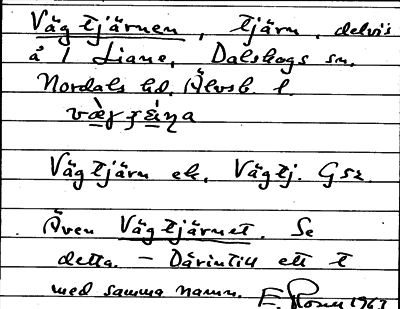 Vägtjärnen, tjärn, delvis
å 1 Liane, Dalskogs sn,
Nordals hd. Älvsb. l.
Vägtjärn ek, Vägtj. Gsz.
Även Vägtjärnet. Se
detta. – Därintill ett t
med samma namn. E. Rosell 1967